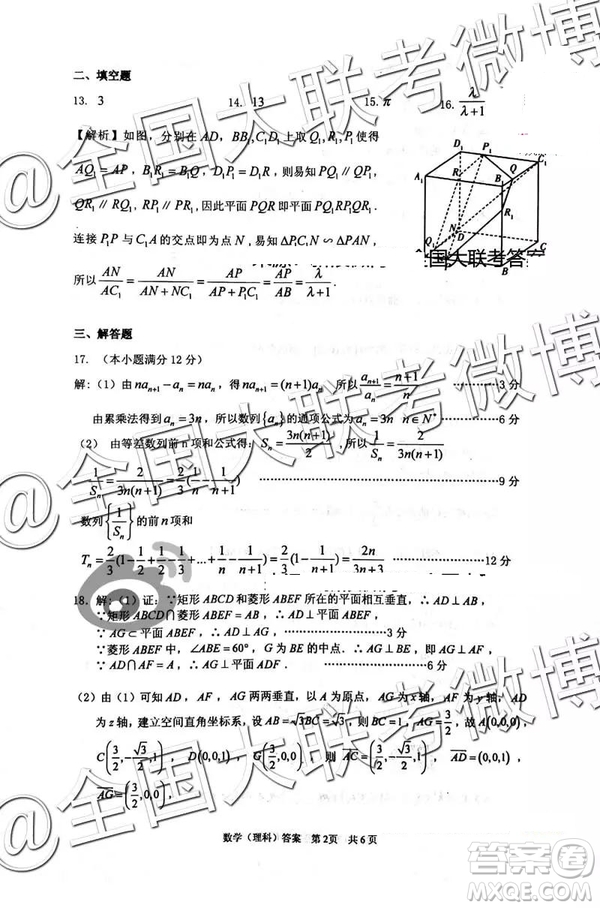 二、填空题
13. 3 14. 13 15. π 16. λ/(λ+1)
【解析】如图，分别在AD，BB₁,C₁D₁上取Q₁,R₁,P₁使得
AQ₁ = AP，B₁R₁ = B₁Q，D₁P₁ = D₁R，则易知PQ₁ ∥ QP₁，
QR₁ ∥ RQ₁，RP₁ ∥ PR₁，因此平面PQR即平面PQ₁RP₁QR₁.
连接P₁P与C₁A的交点即为点N，易知ΔP₁C₁N∽ΔPAN，
所以 AN/AC₁ = AN/(AN + NC₁) = AP/(AP + P₁C₁) = AP/AB = λ/(λ+1).
D₁ P₁ C₁
A₁ B₁ Q
R R₁
N D
Q₁ C
B
国大联考答案
三、解答题
17. （本小题满分12分）
解：（1）由naₙ₊₁ − aₙ = naₙ，得naₙ₊₁ = (n+1)aₙ 所以 aₙ₊₁/aₙ = (n+1)/n ……3分
由累乘法得到aₙ = 3n，所以数列{aₙ}的通项公式为aₙ = 3n n∈N⁺ ……6分
（2） 由等差数列前n项和公式得：Sₙ = 3n(n+1)/2，所以
1/Sₙ = 2/(3n(n+1)) = 2/3(1/n − 1/(n+1)) ……9分
数列{1/Sₙ}的前n项和
Tₙ = 2/3(1 − 1/2 + 1/2 − 1/3 + … + 1/n − 1/(n+1)) = 2n/(3n+3) ……12分
18. 解：（1）证：∵矩形ABCD和菱形ABEF所在的平面相互垂直，∴AD⊥AB，
∵矩形ABCD∩菱形ABEF = AB，∴AD⊥平面ABEF，
∵AG⊂平面ABEF，∴AD⊥AG，……3分
∵菱形ABEF中，∠ABE = 60°，G为BE的中点，∴AG⊥BE，即AG⊥AF，
∵AD∩AF = A，∴AG⊥平面ADF．……6分
（2）由（1）可知AD，AF，AG两两垂直，以A为原点，AG为x轴，AF为y轴，AD
为z轴，建立空间直角坐标系，设AB = √3BC = √3，则BC = 1，AG = 3/2，故A(0,0,0)，
C(3/2, −√3/2, 1)，D(0,0,1)，G(3/2,0,0)，则 AC = (3/2, −√3/2, 1)，AD = (0,0,1)，
AG = (3/2,0,0)，
数学（理科）答案 第2页 共6页
@全国大联考微博
@全国大联考微博
@全国大联考微博
答案卷